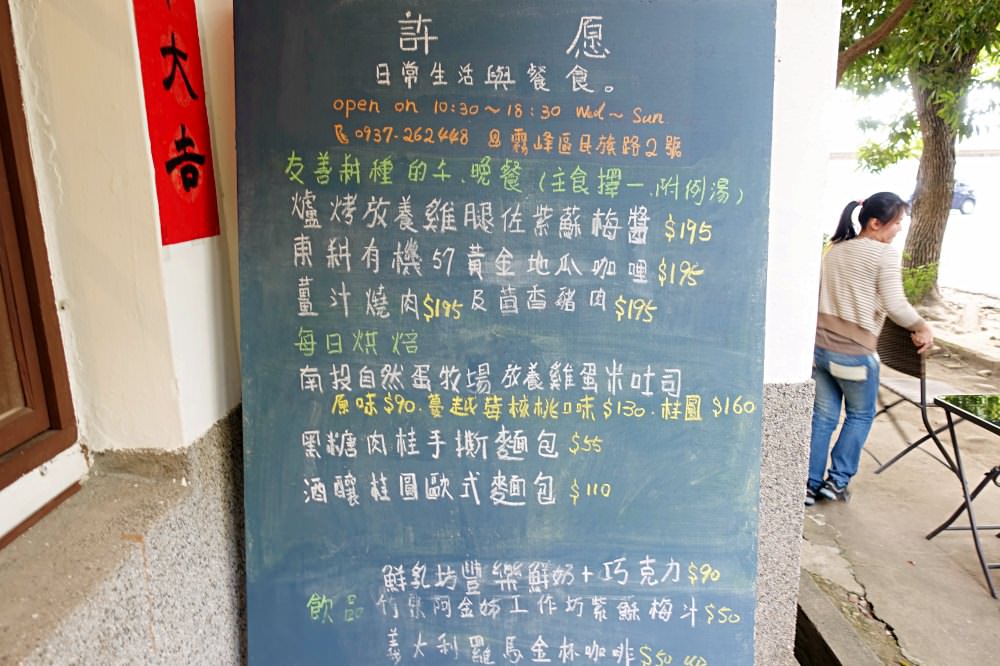 大吉
許愿
日常生活與餐食。
open on 10:30～18:30 Wed～Sun
0937-262448 @霧峰區民族路2號
友善耕種的午.晚餐(主食擇一.附例湯)
爐烤放養雞腿佐紫蘇梅醬 $195
東耕有機57黃金地瓜咖哩 $195
薑汁燒肉$195及茴香豬肉 $195
每日烘焙
南投自然蛋牧場放養雞蛋米吐司
原味$90.蔓越莓核桃口味$130.桂圓$160
黑糖肉桂手撕麵包 $55
酒釀桂圓歐式麵包 $110
鮮乳坊豐樂鮮奶+巧克力$90
飲品 竹張阿金姊工作坊紫蘇梅汁$50
義大利羅馬金杯咖啡$50